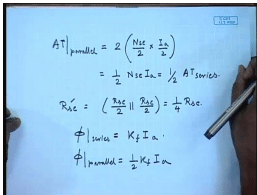 AT|parallel = 2 (Nse/2 × Ia/2)
= 1/2 Nse Ia = 1/2 ATseries.
Rse' = (Rse/2 || Rse/2) = 1/4 Rse.
φ|series = Kf Ia.
φ|parallel = 1/2 Kf Ia